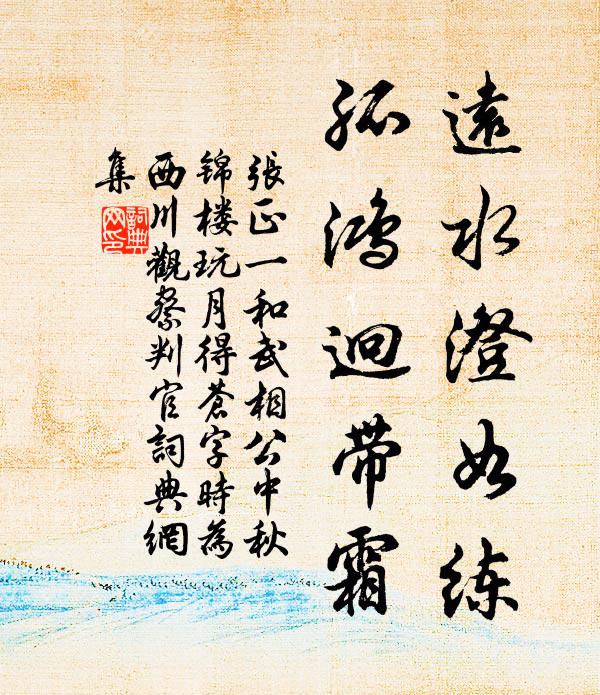 遠水澄如练
孤鸿迥带霜
張正一和武相公中秋
锦楼玩月得蒼字時為
西川觀察判官詞典網
集
詞典
网印